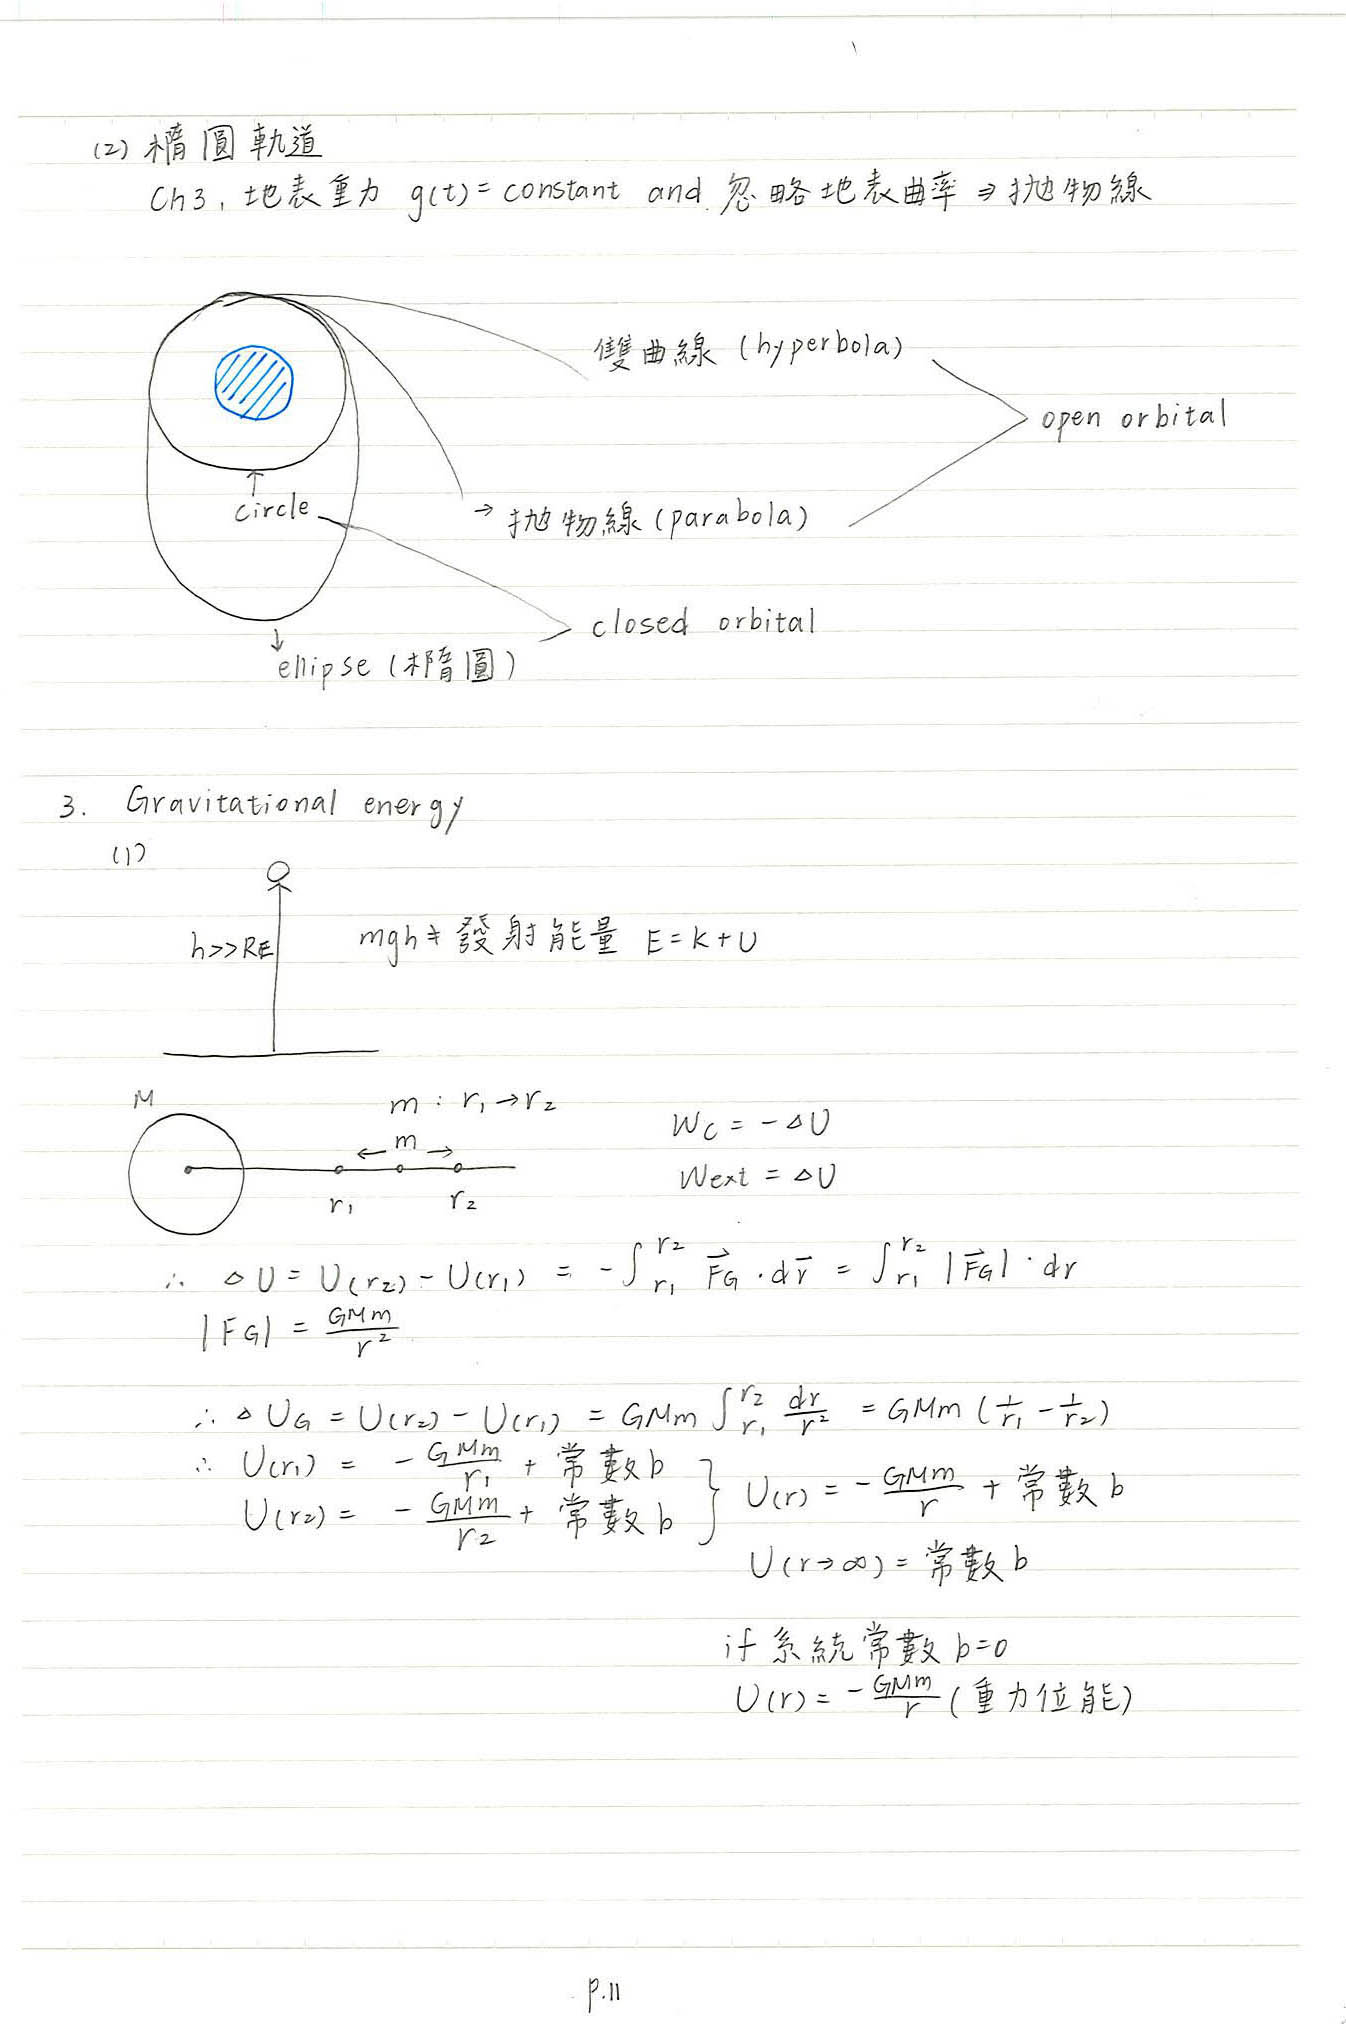 (2) 橢圓軌道
Ch3, 地表重力 g(t) = constant and 忽略地表曲率 ⇒ 拋物線
雙曲線 (hyperbola)
open orbital
circle
→ 拋物線 (parabola)
closed orbital
ellipse (橢圓)
3. Gravitational energy
(1)
h>>RE
mgh ≠ 發射能量 E = K + U
M
m : r₁ → r₂
Wc = -△U
← m →
Wext = △U
r₁ r₂
∴ △U = U(r₂) - U(r₁) = -∫_{r₁}^{r₂} F⃗G · dr⃗ = ∫_{r₁}^{r₂} |F⃗G| · dr
|FG| = GMm/r²
∴ △UG = U(r₂) - U(r₁) = GMm ∫_{r₁}^{r₂} dr/r² = GMm (1/r₁ - 1/r₂)
∴ U(r₁) = - GMm/r₁ + 常數 b
U(r₂) = - GMm/r₂ + 常數 b
} U(r) = - GMm/r + 常數 b
U(r→∞) = 常數 b
if 系統常數 b=0
U(r) = - GMm/r (重力位能)
p.11